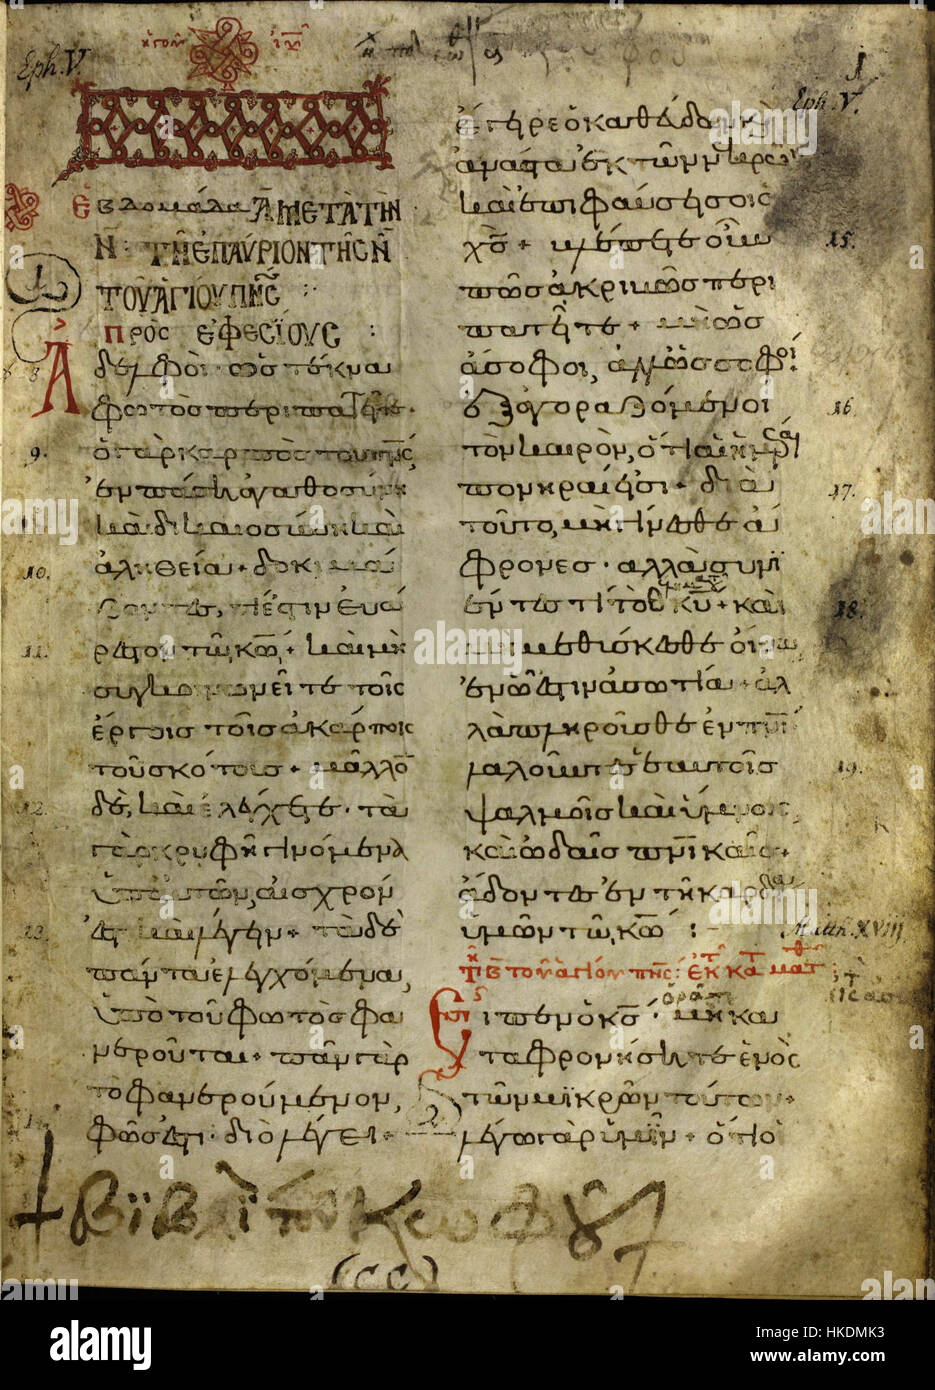 Eph. V.
Eph. V.
1
Εβδομάδα Α ΜΕΤΑ ΤῊΝ
Ν̄· ΤΗ͂ ΕΠΑΥΡΙΟΝ ΤΗ͂Σ Ν̄
ΤΟΥ ΑΓΙΟΥ ΠΝ͞Σ :
πρὸς εφεσίους :
Ἀ
δελφοὶ· ὡς τέκνα
φωτὸς περιπατεῖτε·
9. ὁ γὰρ καρπὸς τοῦ πν͞ς,
ἐν πάσῃ ἀγαθοσύνῃ
καὶ δικαιοσύνῃ καὶ
10. ἀληθεία + δοκιμά
ζοντες, τί ἐστιν ἐυά
11. ρεστον τῶ κ͞ω, + καὶ μὴ
συγκοινωνεῖτε τοῖς
ἔργοις τοῖς ἀκάρποις
τοῦ σκότους + μᾶλλο͞
12. δὲ, καὶ ἐλέγχετε· τὰ
γὰρ κρυφῆ γινόμενα
ὑπ' αὐτῶν, αἰσχρόν
13. ἐστι καὶ λέγειν + τὰ δὲ
πάντα ἐλεγχόμενα,
ὑπὸ τοῦ φωτὸς φα
νεροῦται + πᾶν γὰρ
τὸ φανερούμενον,
φῶς ἐστι· διὸ λέγει +
ἔγειρε ὁ καθεύδων κ̀
ἀνάστα ἐκ τῶν νεκρῶν
καὶ ἐπιφαύσει σοι ὁ
15. χ͞ς + βλέπετε οὖν
πῶς ἀκριβῶς περι
πατεῖτε + μὴ ὡς
ἄσοφοι, ἀλλ' ὡς σοφοί·
16. ἐξαγοραζόμενοι
τὸν καιρὸν, ὅτι αἱ ἡμέραι
17. πονηραί εἰσι + διὰ
τοῦτο, μὴ γίνεσθε ἄ
φρονες· ἀλλὰ συνϊ
18. έντες τί τὸ θέλημα τοῦ κ͞υ + καὶ
μὴ μεθύσκεσθε οἴνω
ἐν ὧ ἐστιν ἀσωτία + ἀλ
λὰ πληροῦσθε ἐν πν͞ι
19. λαλοῦντες ἑαυτοῖς
ψαλμοῖς καὶ ὕμνοις
καὶ ὠδαῖς πν͞ικαῖς +
ἄδοντες ἐν τῆ καρδία
ὑμῶν τῶ κ͞ω :
Matth. XVIII
εἶπεν ὁ κ͞ς· ὁρᾶτε μὴ κα
ταφρονήσητε ἑνὸς
τῶν μϊκρῶν τούτων +
λέγω γὰρ ὑμῖν + ὅτι οἱ
(CC)
alamy
Image ID: HKDMK3
www.alamy.com